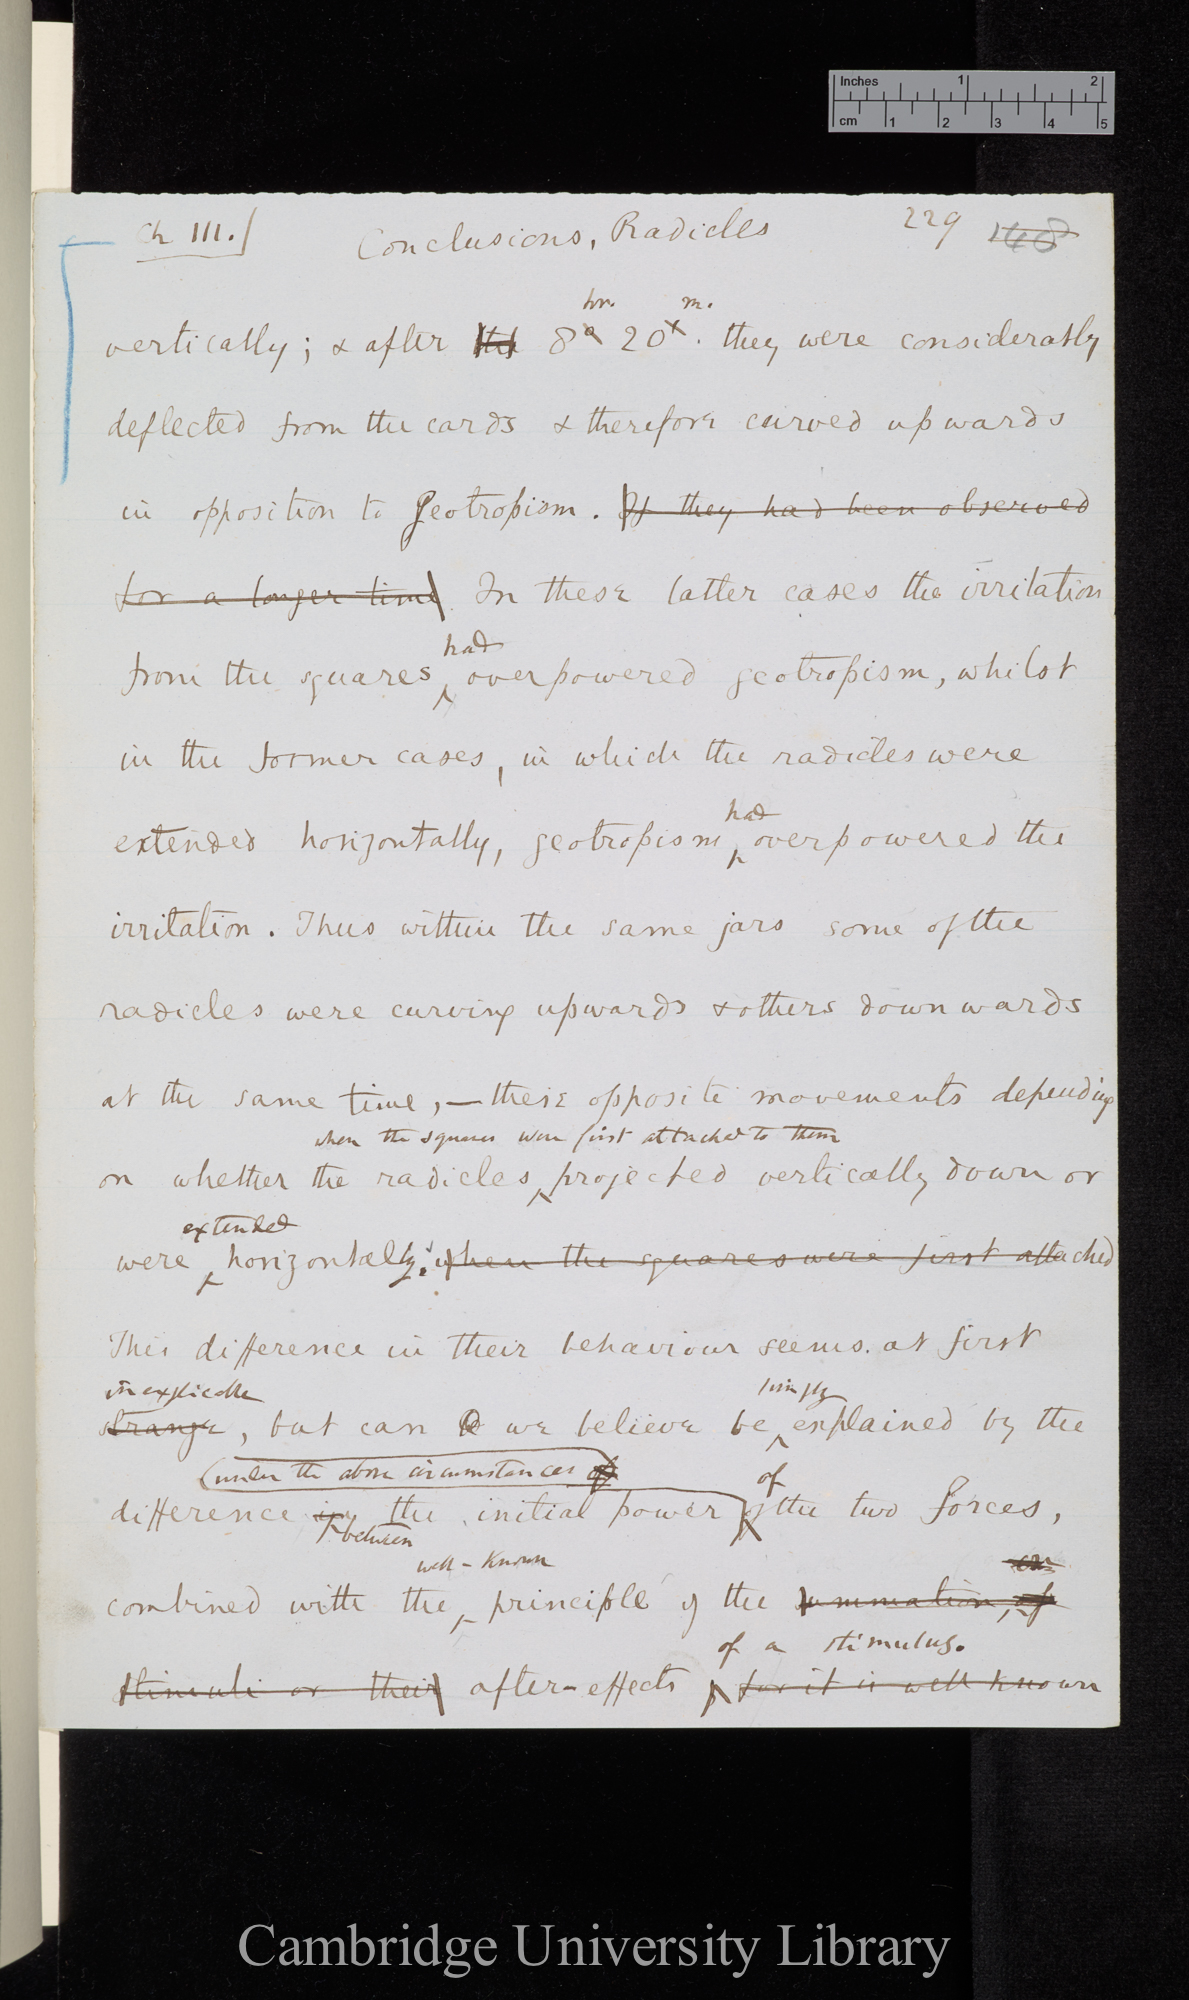 Inches 1 2
cm 1 2 3 4 5
Ch III.
Conclusions, Radicles
229 148
hr. m.
vertically; & after 8 20 . they were considerably
deflected from the cards & therefore curved upwards
in opposition to Geotropism . If they had been observed
for a longer time In these latter cases the irritation
had
from the squares overpowered geotropism, whilst
in the former cases, in which the radicles were
had
extended horizontally, geotropism overpowered the
irritation. Thus within the same jars some of the
radicles were curving upwards & others downwards
at the same time, — these opposite movements depending
when the squares were first attached to them
on whether the radicles, projected vertically down or
extended
were horizontally; when the squares were first attached
This difference in their behaviour seems at first
inexplicable simply
strange, but can we believe be explained by the
(under the above circumstances of
difference in the initial power of the two forces,
between
well-known
combined with the, principle of the summation, of
of a stimulus.
stimuli or their after-effects for it is well known
Cambridge University Library